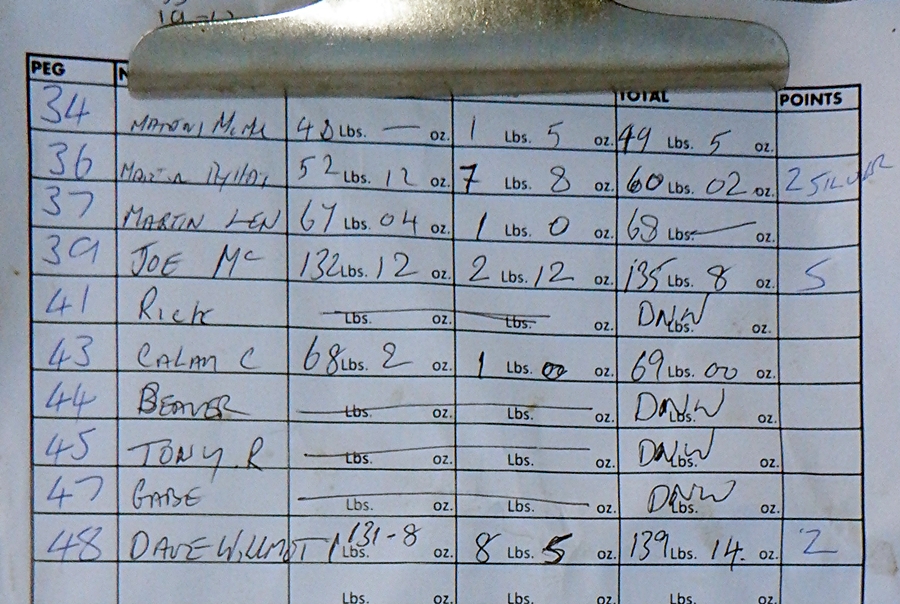 19-12
PEG N TOTAL POINTS
34 48 Lbs. — oz. 1 Lbs. 5 oz. 49 Lbs. 5 oz.
36 52 Lbs. 12 oz. 7 Lbs. 8 oz. 60 Lbs. 02 oz. 2 SILVER
37 MARTIN LEN 67 Lbs. 04 oz. 1 Lbs. 0 oz. 68 Lbs. —
39 JOE Mc 132 Lbs. 12 oz. 2 Lbs. 12 oz. 135 Lbs. 8 oz. 5
41 Rick — Lbs. oz. Lbs. oz. DNW Lbs. oz.
43 CALAM C 68 Lbs. 2 oz. 1 Lbs. 00 oz. 69 Lbs. 00 oz.
44 BEAVER — Lbs. oz. Lbs. oz. DNW Lbs. oz.
45 TONY.R — Lbs. oz. Lbs. oz. DNW Lbs. oz.
47 GABE — Lbs. oz. Lbs. oz. DNW Lbs. oz.
48 DAVE WILLMOT 131-8 Lbs. oz. 8 Lbs. 5 oz. 139 Lbs. 14. oz. 2
Lbs. oz. Lbs. oz. Lbs. oz.